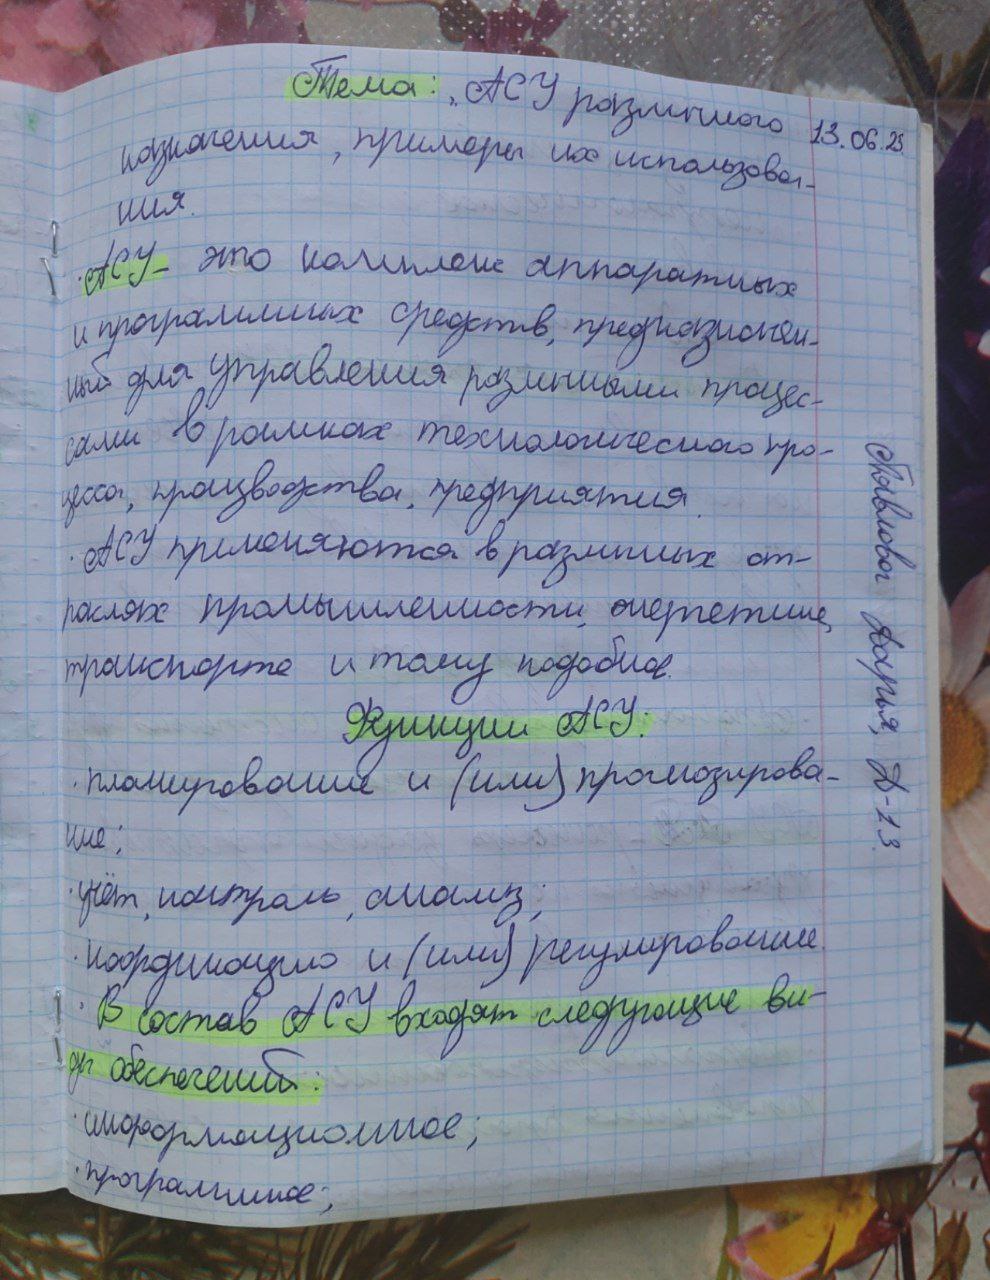 Тема: „АСУ различного
13.06.25
назначения, примеры их использова-
ния.
·АСУ- это комплекс аппаратных
и программных средств, предназначен-
ный для управления различными процес-
сами в рамках технологического про-
цесса, производства, предприятия.
·АСУ применяются в различных от-
раслях промышленности, энергетике,
транспорте и тому подобное.
Функции АСУ:
·планирование и (или) прогнозирова-
ние;
·учёт, контроль, анализ;
·координацию и (или) регулирование.
·В состав АСУ входят следующие ви-
ды обеспечений:
·информационное;
·программное;
Павлова Дарья, Д-13